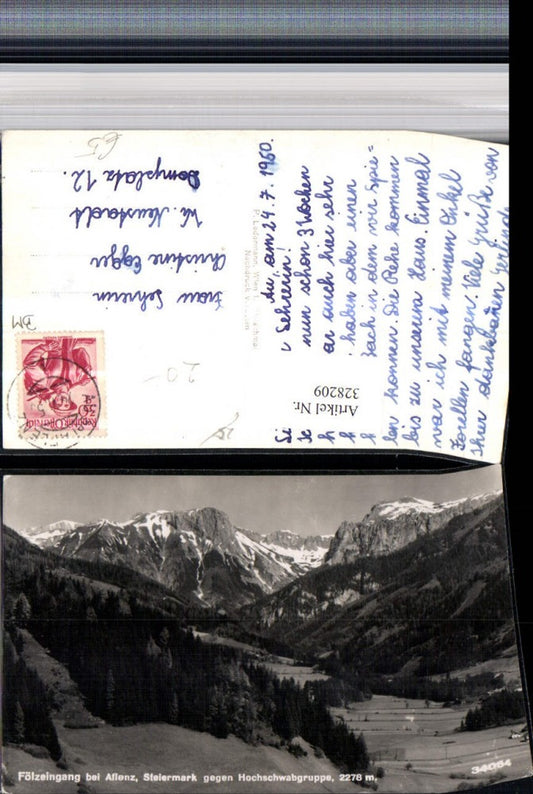 du, am 24. 7. 1960.
Lehrerin!
nun schon 3 Wochen
ar auch hier sehr
haben aber einen
bach in dem wir Spie=
len konnen. Die Rehe kommen
bis zu unserem Haus. Einmal
war ich mit meinem Onkel
Forellen fangen. Viele Grüße von
Ihrer dankbaren Gerlinde
Frau Lehrerin
Christine Egger
Wr. Neustadt
Domplatz 12.
Artikel Nr.
328209
20-
DM
Republik Österreich
Fölzeingang bei Aflenz, Steiermark gegen Hochschwabgruppe, 2278 m.
34064